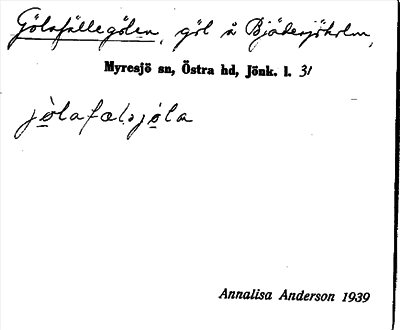 Gölafällegölen, göl å Bjädesjöholm,
Myresjö sn, Östra hd, Jönk. l. 31
jölafæləjöla
Annalisa Anderson 1939